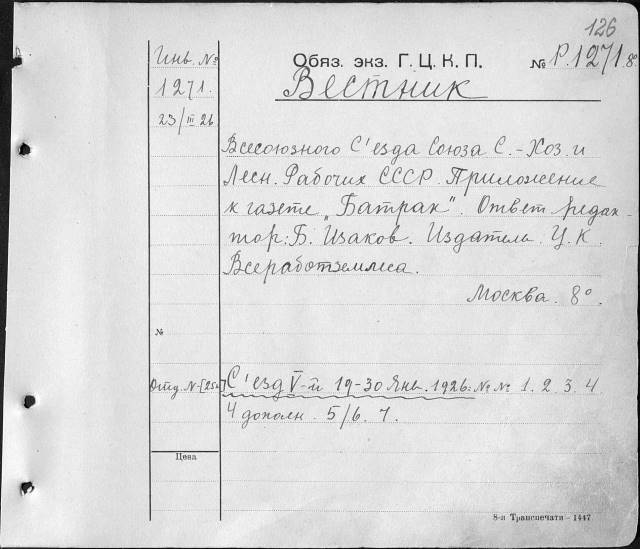 126
Инв. №
1271.
23/III 26
Обяз. экз. Г. Ц. К. П.
№ Р.1271.8°
Вестник
Всесоюзного С'езда Союза С.-Хоз. и
Лесн. Рабочих СССР. Приложение
к газете „Батрак". Ответ. редак-
тор: Б. Изаков. Издатель Ц. К.
Всеработземлеса.
Москва. 8°.
№
Отд. №
С'езд V-й 19-30 Янв. 1926: №№ 1. 2. 3. 4
4 дополн. 5/6. 7.
Цена
8-я Транспечати – 1447